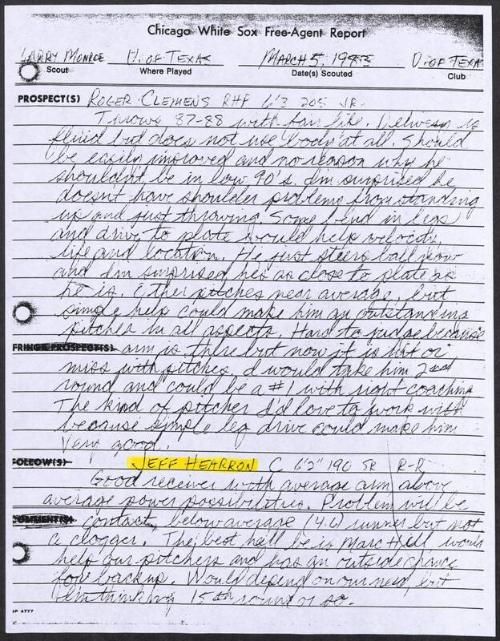 Chicago White Sox Free-Agent Report
LARRY MONROE U. OF TEXAS MARCH 5, 1983 U. OF TEXAS
Scout Where Played Date(s) Scouted Club
PROSPECT(S) ROGER CLEMENS RHP 6'3 205 JR.
Throws 87-88 with fair life. Delivery is
fluid but does not use body at all. Should
be easily improved and no reason why he
shouldn't be in low 90's. I'm surprised he
doesn't have shoulder problems from standing
up and just throwing. Some bend in legs
and drive to plate would help velocity,
life and location. He just steers ball now
and I'm surprised he's as close to plate as
he is. Other pitches near average, but
simple help could make him an outstanding
pitcher in all aspects. Hard to judge because
FRINGE PROSPECT(S) arm is there but now it is hit or
miss with pitches. I would take him 2nd
round and could be a #1 with right coaching.
The kind of pitcher I'd love to work with
because simple leg drive could make him
very good.
FOLLOW(S) JEFF HEARRON C 6'2" 190 SR R-R
Good receiver with average arm above
average power possibilities. Problem will be
COMMENT(S) contact, below average (4.6) runner but not
a clogger. The best he'll be is Marc Hill would
help our pitchers and has an outside chance
for backup. Would depend on our need, but
I'm thinking 15th round or so.